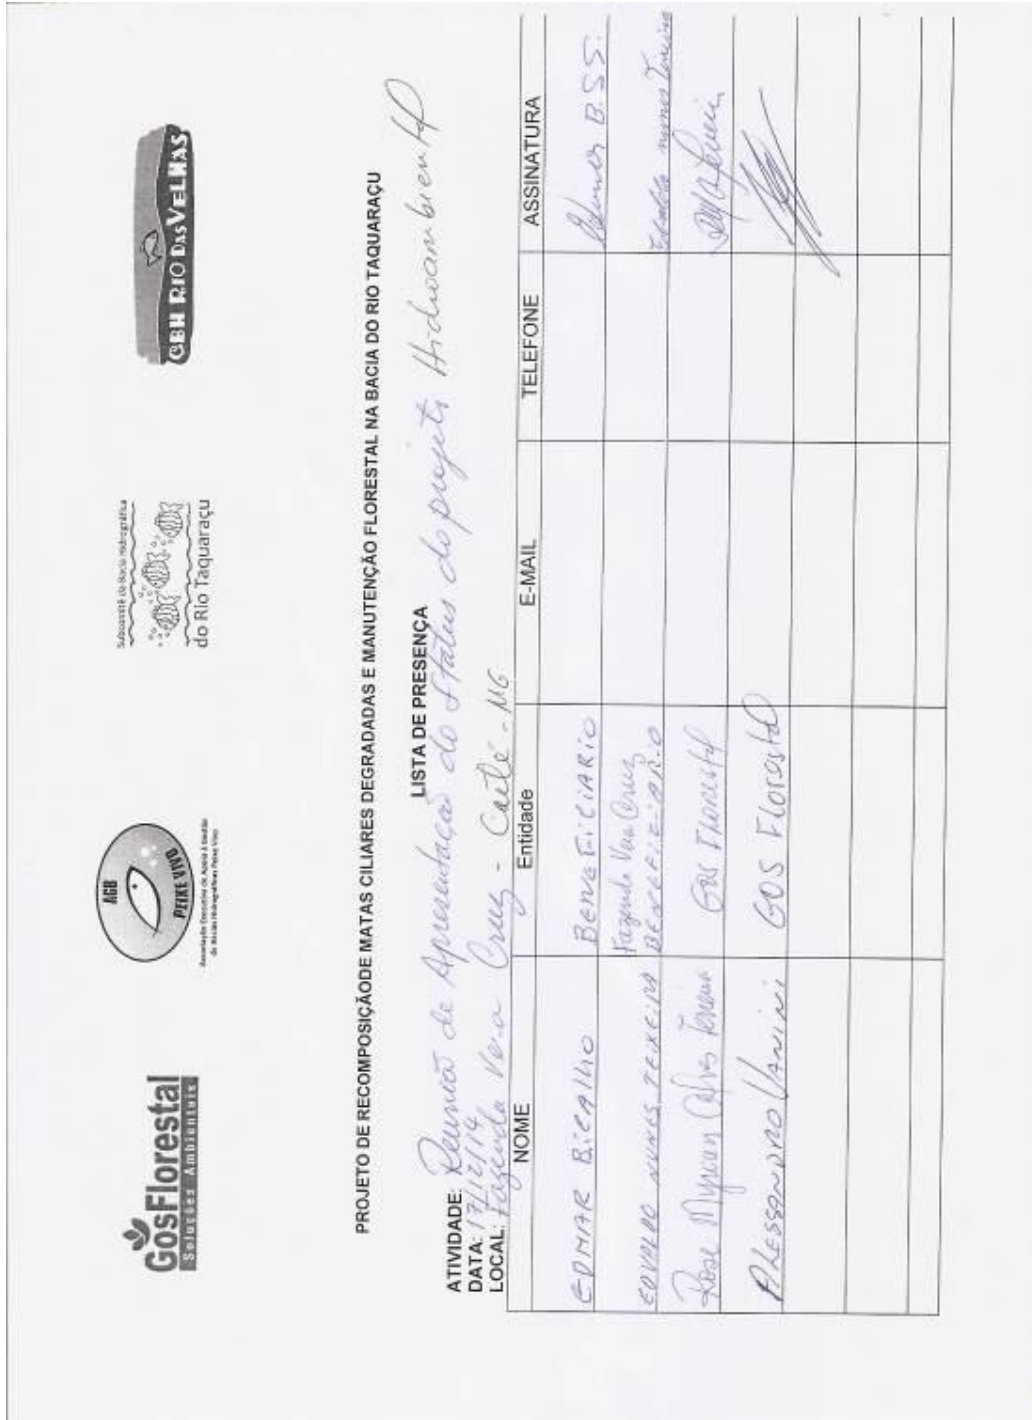 GosFlorestal
Soluções Ambientais
AGB
PEIXE VIVO
Associação Executiva de Apoio à Gestão
de Bacias Hidrográficas Peixe Vivo
Subcomitê da Bacia Hidrográfica
do Rio Taquaraçu
CBH RIO DAS VELHAS
PROJETO DE RECOMPOSIÇÃODE MATAS CILIARES DEGRADADAS E MANUTENÇÃO FLORESTAL NA BACIA DO RIO TAQUARAÇU
LISTA DE PRESENÇA
ATIVIDADE: Reunião de Apresentação do Status do projeto Hidroambiental
DATA: 17/12/14
LOCAL: Fazenda Vera Cruz - Caeté - MG
NOME Entidade E-MAIL TELEFONE ASSINATURA
EDMAR BICALHO BENEFICIARIO Edmar B.S.S.
Fazenda Vera Cruz
EDVALDO NUNES TEIXEIRA BENEFICIARIO Edvaldo nunes Teixeira
Rose Myrian Alves Ferreira GOS Florestal
ALESSANDRO VANINI GOS Florestal